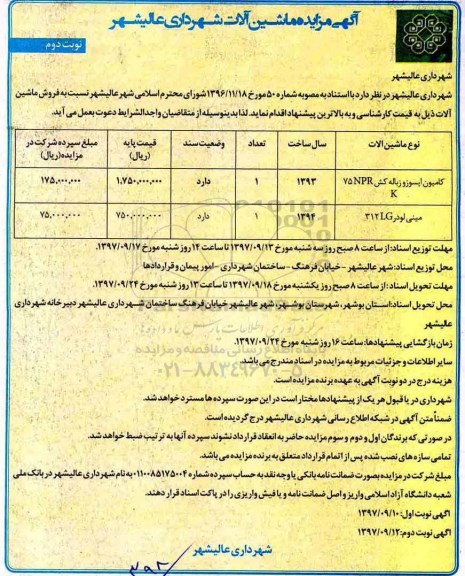 آگهی مزایده ماشین آلات شهرداری عالیشهر
نوبت دوم
شهرداری عالیشهر
شهرداری عالیشهر در نظر دارد با استناد به مصوبه شماره ۵۰ مورخ ۱۳۹۶/۱۱/۱۸ شورای محترم اسلامی شهر عالیشهر نسبت به فروش ماشین
آلات ذیل به قیمت کارشناسی و به بالاترین پیشنهاد اقدام نماید. لذا بدینوسیله از متقاضیان واجدالشرایط دعوت بعمل می آید.
نوع ماشین آلات	سال ساخت	تعداد	وضعیت سند	قیمت پایه (ریال)	مبلغ سپرده شرکت در مزایده (ریال)
کامیون ایسوزو زباله کش ۷۵ NPR K	۱۳۹۳	۱	دارد	۱,۷۵۰,۰۰۰,۰۰۰	۱۷۵,۰۰۰,۰۰۰
مینی لودر ۳۱۲ LG	۱۳۹۴	۱	دارد	۷۵۰,۰۰۰,۰۰۰	۷۵,۰۰۰,۰۰۰
مهلت توزیع اسناد: از ساعت ۸ صبح روز سه شنبه مورخ ۱۳۹۷/۰۹/۱۳ تا ساعت ۱۴ روز شنبه مورخ ۱۳۹۷/۰۹/۱۷.
محل توزیع اسناد: شهر عالیشهر - خیابان فرهنگ - ساختمان شهرداری - امور پیمان و قراردادها
مهلت تحویل اسناد: از ساعت ۸ صبح روز یکشنبه مورخ ۱۳۹۷/۰۹/۱۸ تا ساعت ۱۳ روز شنبه مورخ ۱۳۹۷/۰۹/۲۴.
محل تحویل اسناد: استان بوشهر، شهرستان بوشهر، شهر عالیشهر خیابان فرهنگ ساختمان شهرداری عالیشهر دبیرخانه شهرداری
عالیشهر
زمان بازگشایی پیشنهادها: ساعت ۱۶ روز شنبه مورخ ۱۳۹۷/۰۹/۲۴.
سایر اطلاعات و جزئیات مربوط به مزایده در اسناد مندرج می باشد.
هزینه درج در دو نوبت آگهی به عهده برنده مزایده است.
شهرداری در یا قبول هر یک از پیشنهادها مختار است در این صورت سپرده ها مسترد خواهد شد.
ضمناً متن آگهی در شبکه اطلاع رسانی شهرداری عالیشهر درج گردیده است.
در صورتی که برندگان اول و دوم و سوم مزایده حاضر به انعقاد قرارداد نشوند سپرده آنها به ترتیب ضبط خواهد شد.
تمامی سازه های نصب شده پس از اتمام قرارداد متعلق به برنده مزایده می باشد.
مبلغ شرکت در مزایده بصورت ضمانت نامه بانکی یا وجه نقد به حساب سپرده شماره ۰۱۱۰۰۸۵۱۷۵۰۰۴ به نام شهرداری عالیشهر در بانک ملی
شعبه دانشگاه آزاد اسلامی واریز و اصل ضمانت نامه و یا فیش واریزی را در پاکت اسناد قرار دهند.
آگهی نوبت اول: ۱۳۹۷/۰۹/۱۰
آگهی نوبت دوم: ۱۳۹۷/۰۹/۱۲
شهرداری عالیشهر